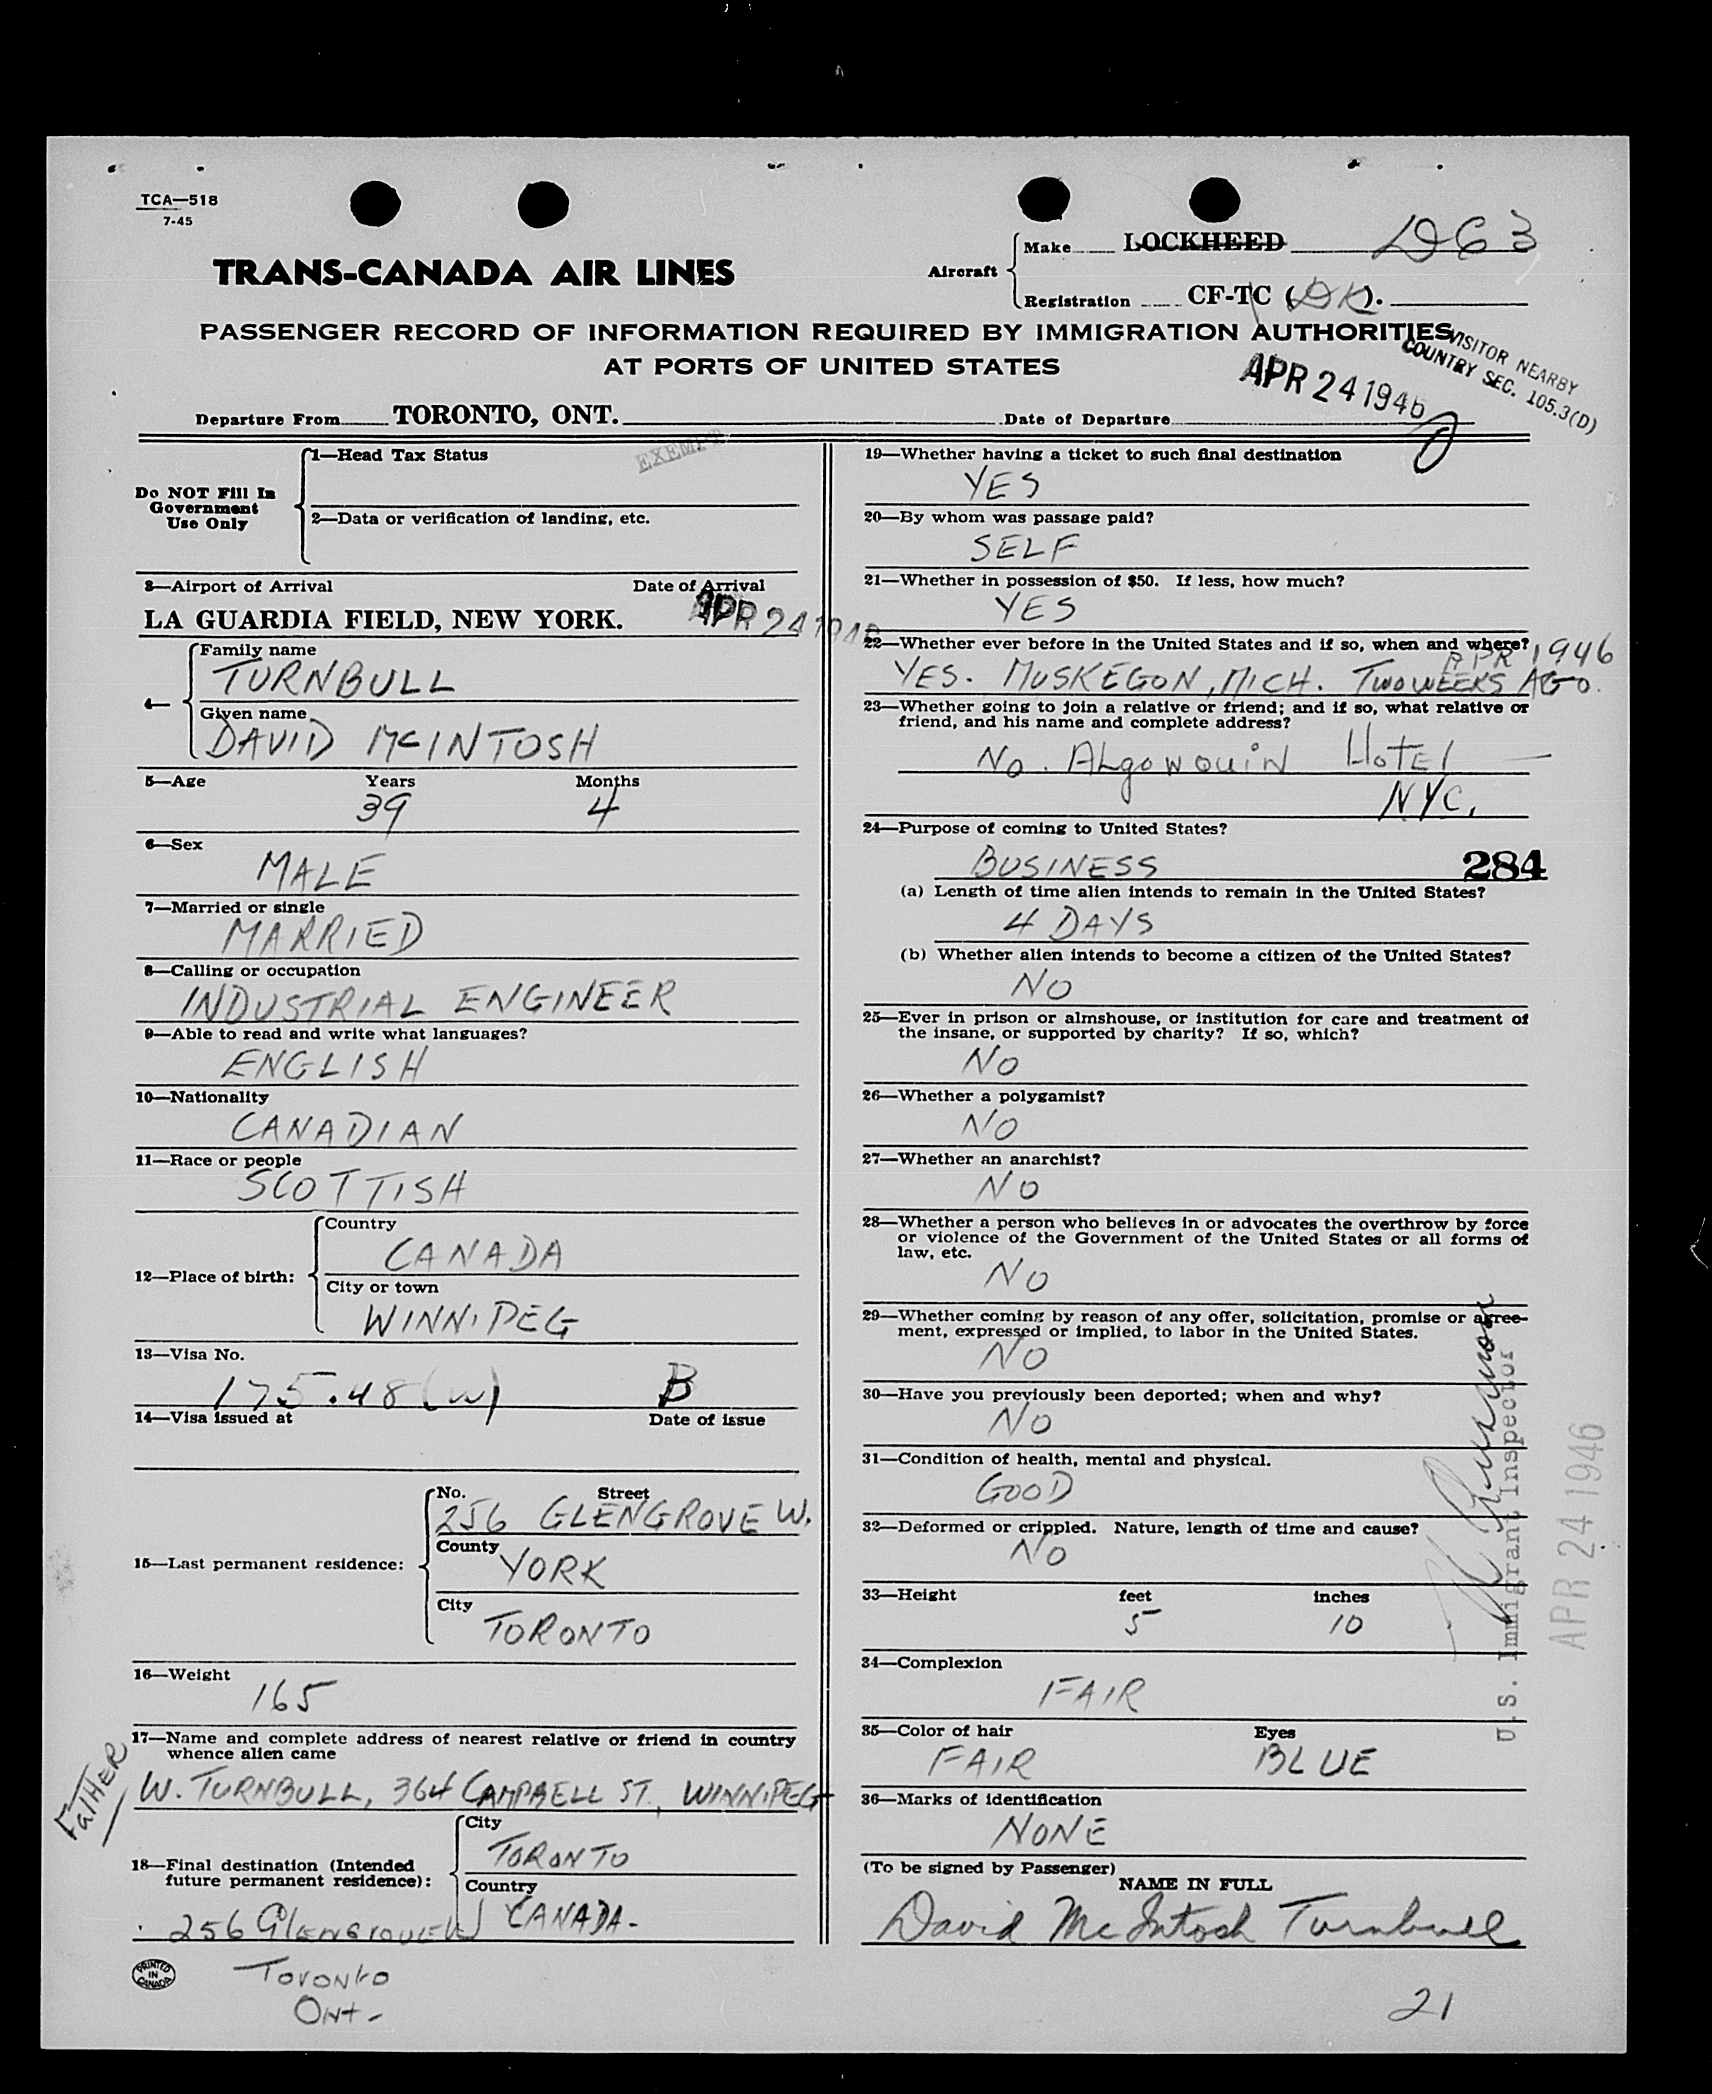 TCA—518
7-45
TRANS-CANADA AIR LINES
Aircraft
Make LOCKHEED DC3
Registration CF-TC (DK).
PASSENGER RECORD OF INFORMATION REQUIRED BY IMMIGRATION AUTHORITIES
AT PORTS OF UNITED STATES
VISITOR NEARBY
COUNTRY SEC. 105.3(D)
APR 24 1946
Departure From TORONTO, ONT. Date of Departure
Do NOT Fill In
Government
Use Only
1—Head Tax Status EXEMPT
2—Data or verification of landing, etc.
3—Airport of Arrival Date of Arrival
LA GUARDIA FIELD, NEW YORK. APR 24 1946
4—
Family name
TURNBULL
Given name
DAVID McINTOSH
5—Age Years Months
39 4
6—Sex
MALE
7—Married or single
MARRIED
8—Calling or occupation
INDUSTRIAL ENGINEER
9—Able to read and write what languages?
ENGLISH
10—Nationality
CANADIAN
11—Race or people
SCOTTISH
12—Place of birth:
Country
CANADA
City or town
WINNIPEG
13—Visa No.
175.48(W) B
14—Visa issued at Date of issue
15—Last permanent residence:
No. Street
256 GLENGROVE W.
County
YORK
City
TORONTO
16—Weight
165
17—Name and complete address of nearest relative or friend in country
whence alien came
FATHER
W. TURNBULL, 364 CAMPBELL ST., WINNIPEG
18—Final destination (Intended
future permanent residence):
City
TORONTO
Country
CANADA.
256 GLENGROVE W
Toronto
Ont-
PRINTED
IN
CANADA
19—Whether having a ticket to such final destination
YES
20—By whom was passage paid?
SELF
21—Whether in possession of $50. If less, how much?
YES
22—Whether ever before in the United States and if so, when and where?
APR 1946
YES. MUSKEGON, MICH. TWO WEEKS AGO.
23—Whether going to join a relative or friend; and if so, what relative or
friend, and his name and complete address?
No. ALgowouiN HoTEl
NYC.
24—Purpose of coming to United States?
BUSINESS
284
(a) Length of time alien intends to remain in the United States?
4 DAYS
(b) Whether alien intends to become a citizen of the United States?
NO
25—Ever in prison or almshouse, or institution for care and treatment of
the insane, or supported by charity? If so, which?
NO
26—Whether a polygamist?
NO
27—Whether an anarchist?
NO
28—Whether a person who believes in or advocates the overthrow by force
or violence of the Government of the United States or all forms of
law, etc.
NO
29—Whether coming by reason of any offer, solicitation, promise or agree-
ment, expressed or implied, to labor in the United States.
NO
30—Have you previously been deported; when and why?
NO
31—Condition of health, mental and physical.
GOOD
32—Deformed or crippled. Nature, length of time and cause?
NO
33—Height feet inches
5 10
34—Complexion
FAIR
35—Color of hair Eyes
FAIR BLUE
36—Marks of identification
NONE
U.S. Immigrant Inspector
APR 24 1946
(To be signed by Passenger)
NAME IN FULL
David McIntosh Turnbull
21